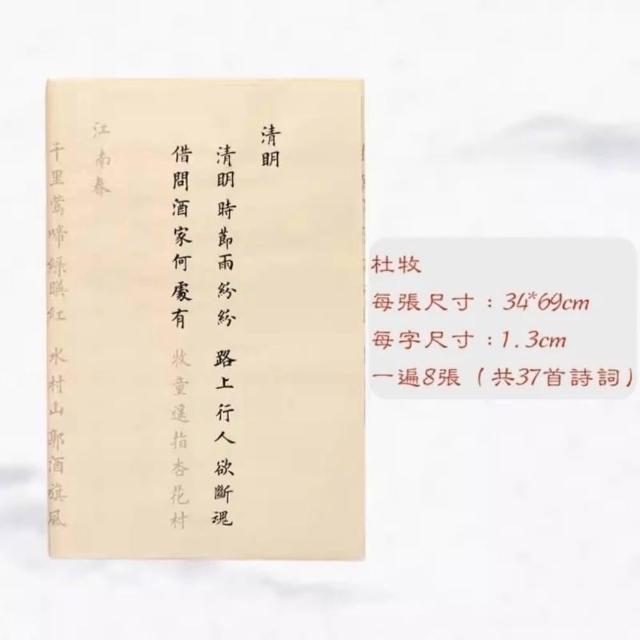 清明
清明時節雨紛紛 路上行人欲斷魂
借問酒家何處有 牧童遥指杏花村
江南春
千里鶯啼緑暎紅 水村山郭酒旗風
杜牧
每張尺寸：34*69cm
每字尺寸：1.3cm
一遍8張（共37首詩詞）